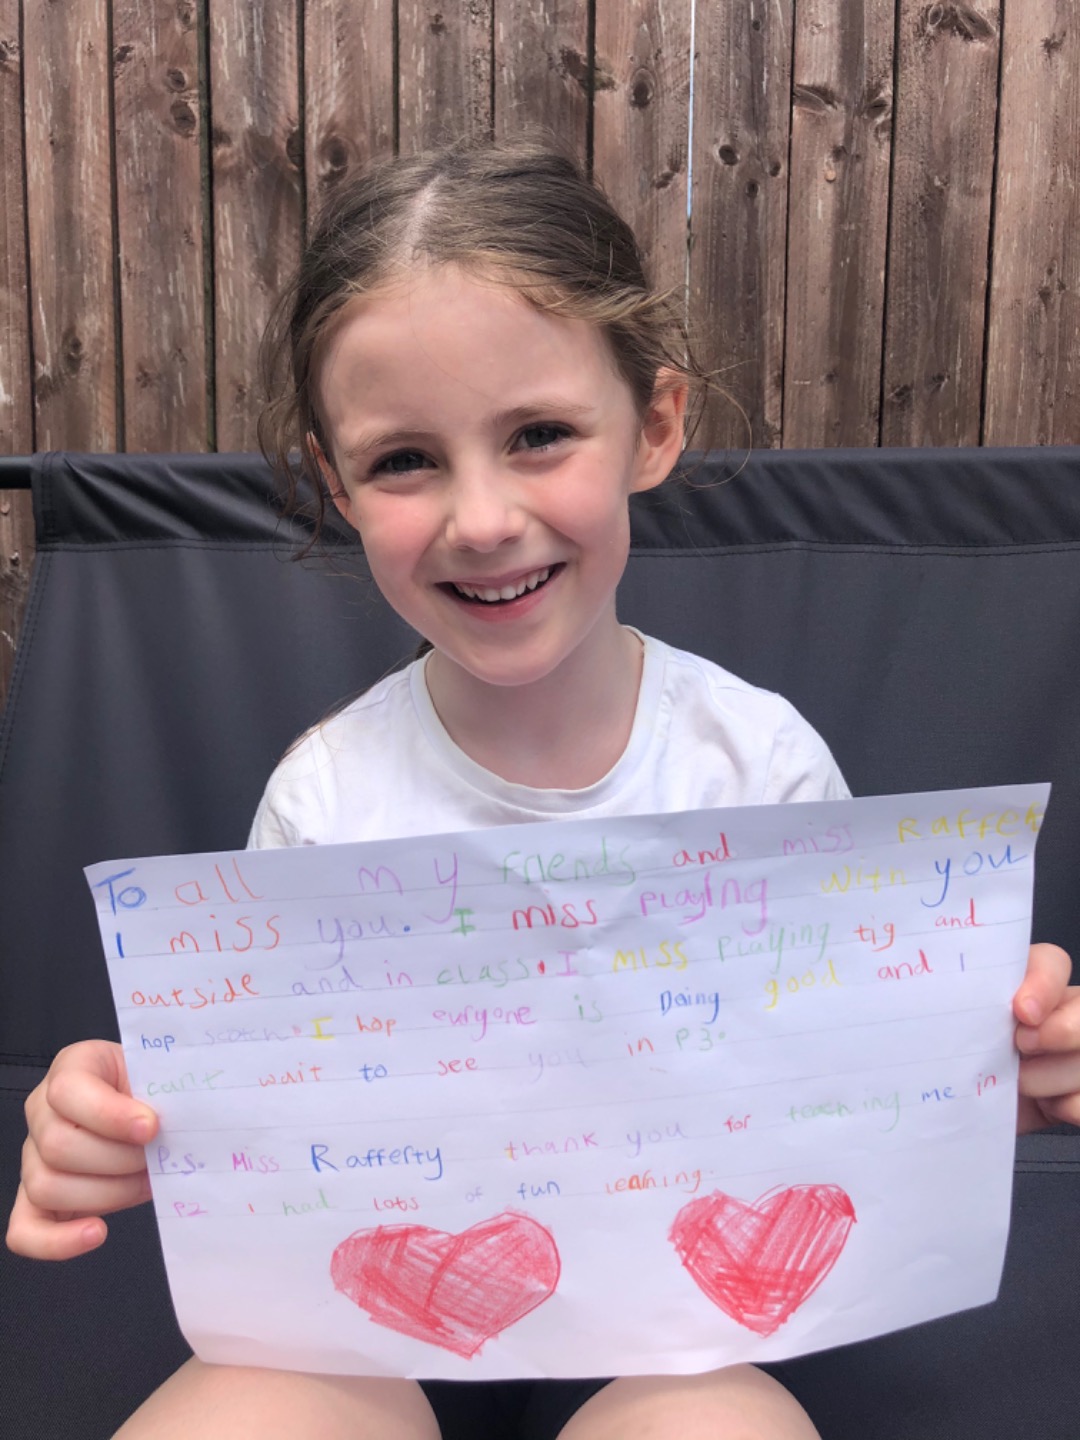 To all my friends and miss Raffer
I miss you. I miss playing with you
outside and in class. I miss playing tig and
hop scotch. I hop everyone is Doing good and I
can't wait to see you in P3.
P.S. Miss Rafferty thank you for teaching me in
P2 I had lots of fun learning.